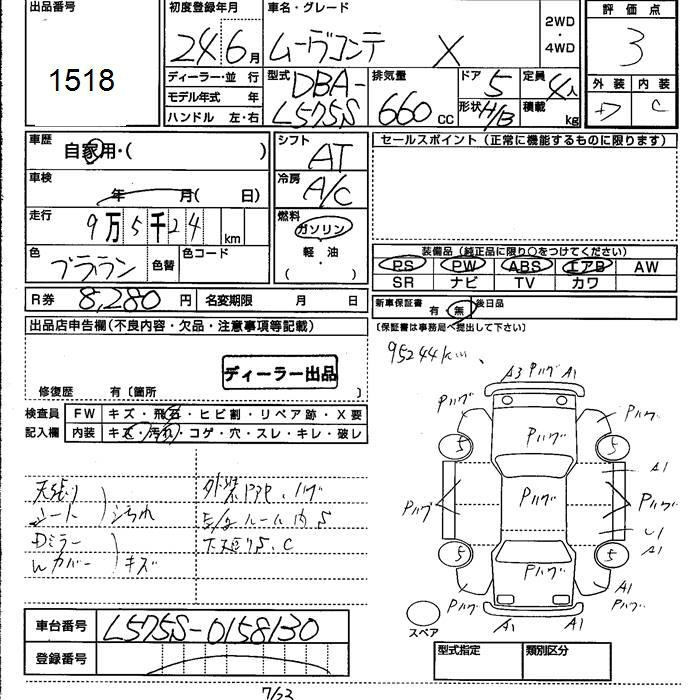 出品番号 1518
初度登録年月 24 6月
車名・グレード ムーヴコンテ X
2WD・4WD
評価点 3
外装 内装 C
ディーラー・並行
モデル年式 年
ハンドル 左・右
型式 DBA-L575S
排気量 660 cc
ドア 5
形状 H/B
定員 4人
積載 kg
車歴 自家用・( )
車検 年 月( 日)
走行 9万5千24 km
色
色替
色コード
シフト AT
冷房 A/C
燃料 ガソリン 軽・油 ( ・ )
セールスポイント(正常に機能するものに限ります)
装備品(純正品に限り○をつけてください)
PS PW ABS エアB AW
SR ナビ TV カワ
R券 8,280 円
名変期限 月 日
新車保証書 有・無
後日品
(保証書は事務局へ提出して下さい)
出品店申告欄(不良内容・欠品・注意事項等記載)
ディーラー出品
修復歴 有〔箇所 〕
95244km
検査員記入欄
FW キズ・飛石・ヒビ割・リペア跡・X要
内装 キズ・汚れ・コゲ・穴・スレ・キレ・破レ
天張り
シート
Dミラー
Wカバー キズ
A3 Pハゲ A1
Pハゲ Pハゲ
5 5
Pハゲ A1
Pハゲ Pハゲ
A1
5 5
Pハゲ
Pハゲ A1 Pハゲ
スペア A1 A1
車台番号 L575S-0158130
登録番号
型式指定 類別区分